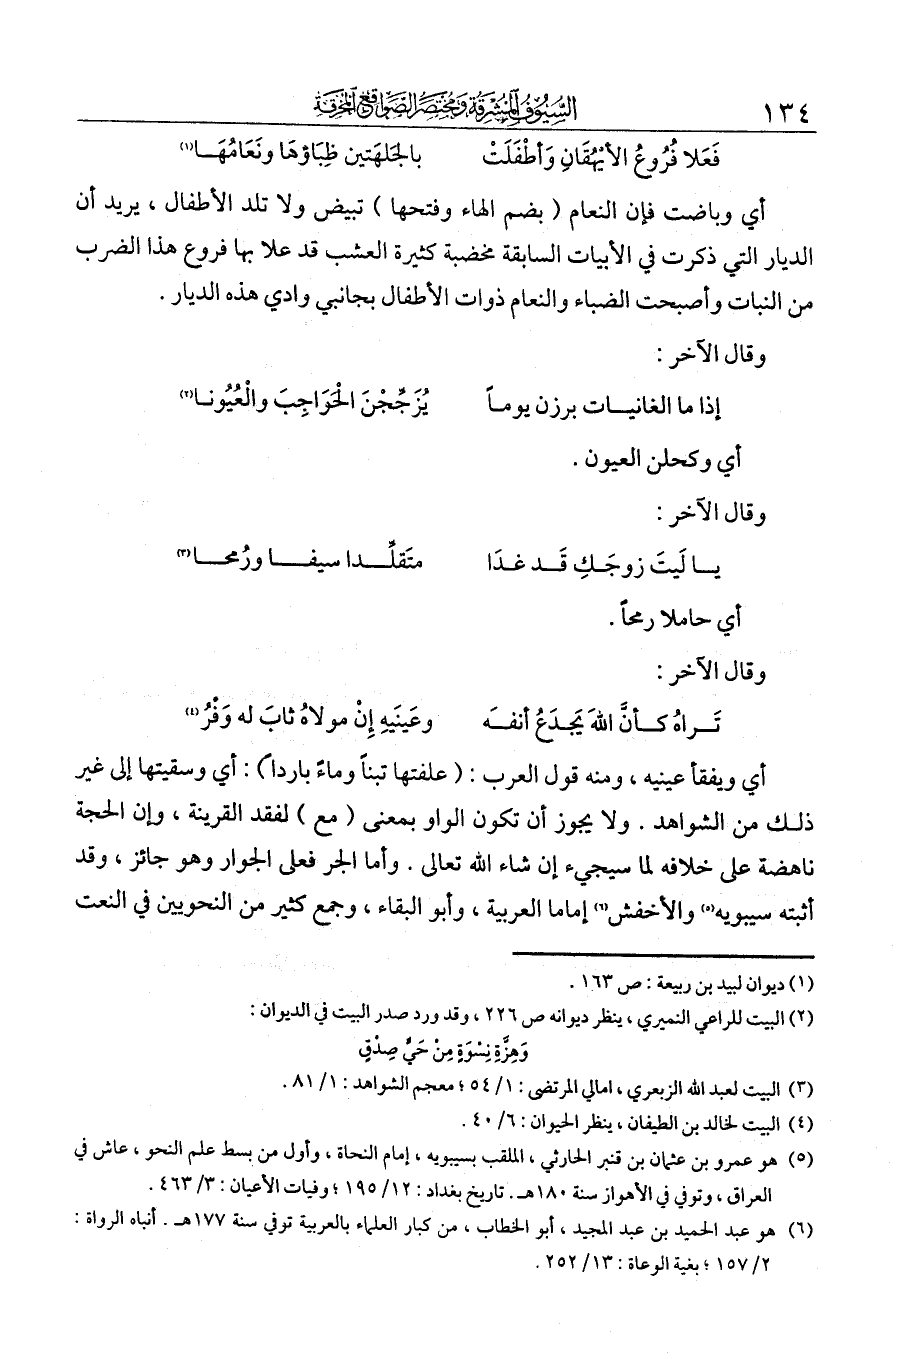 ١٣٤ السيوف المشرقة ومختصر الصواقع المحرقة
فَعَلا فُرُوعُ الأيْهُقَانِ وَأطْفَلَتْ بالجَلهَتين ظِبَاؤهَا ونَعَامُهَـا(١)
أي وباضت فإن النعام ( بضم الهاء وفتحها ) تبيض ولا تلد الأطفال ، يريد أن
الديار التي ذكرت في الأبيات السابقة مخضبة كثيرة العشب قد علا بها فروع هذا الضرب
من النبات وأصبحت الضباء والنعام ذوات الأطفال بجانبي وادي هذه الديار .
وقال الآخر :
إذا ما الغانيـات برزن يومـاً يُزَجِّجْنَ الحْوَاجِبَ والْعُيُونـا(٢)
أي وكحلن العيون .
وقال الآخر :
يــا لَيتَ زوجَـكِ قَـد غـدَا متَقلِّـــدا سيفــا ورُمحــا(٣)
أي حاملا رمحاً .
وقال الآخر :
تَـراهُ كـأنَّ اللهَ يَجدَعُ أنفـه وعَينَيهِ إنْ مولاهُ ثابَ له وَفْرُ(٤)
أي ويفقأ عينيه ، ومنه قول العرب : ( علفتها تبناً وماءً بارداً ) : أي وسقيتها إلى غير
ذلـك من الشواهد . ولا يجوز أن تكون الواو بمعنى ( مع ) لفقد القرينة ، وإن الحجة
ناهضة على خلافه لما سيجيء إن شاء الله تعالى . وأما الجر فعلى الجوار وهو جائز ، وقد
أثبته سيبويه(٥) والأخفش(٦) إماما العربية ، وأبو البقاء ، وجمع كثير من النحويين في النعت
(١) ديوان لبيد بن ربيعة : ص ١٦٣ .
(٢) البيت للراعي النميري ، ينظر ديوانه ص ٢٢٦ ، وقد ورد صدر البيت في الديوان :
وَهِزَّةِ نِسْوَةٍ مِنْ حَيِّ صِدْقٍ
(٣) البيت لعبد الله الزبعري ، امالي المرتضى : ١/ ٥٤ ؛ معجم الشواهد : ١/ ٨١ .
(٤) البيت لخالد بن الطيفان ، ينظر الحيوان : ٦/ ٤٠ .
(٥) هو عمرو بن عثمان بن قنبر الحارثي ، الملقب بسيبويه ، إمام النحاة ، وأول من بسط علم النحو ، عاش في
العراق ، وتوفي في الأهواز سنة ١٨٠هـ . تاريخ بغداد : ١٢/ ١٩٥ ؛ وفيات الأعيان : ٣/ ٤٦٣ .
(٦) هو عبد الحميد بن عبد المجيد ، أبو الخطاب ، من كبار العلماء بالعربية توفي سنة ١٧٧هـ . أنباه الرواة :
٢/ ١٥٧ ؛ بغية الوعاة : ١٣/ ٢٥٢ .